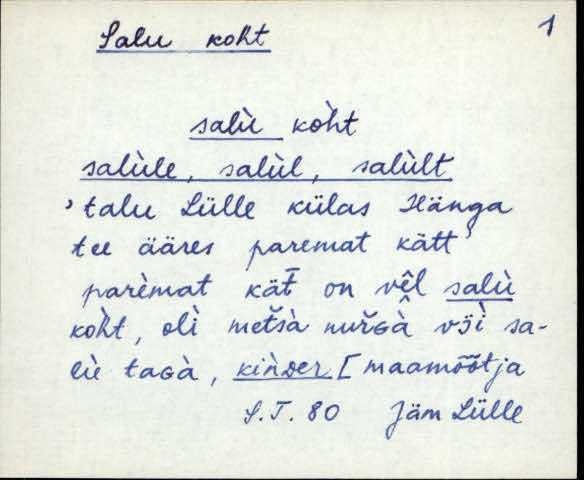 Salu koht
1
salù kòht
salùle, salùl, salùlt
'talu Lülle külas Hänga
tee ääres paremat kätt'
parèmat kät̄ on vêl salù
kòht, oli metšà nuřɢà vȫì sa-
lù taɢà, kìnᴅer [maamõõtja
S.T. 80 Jäm Lülle